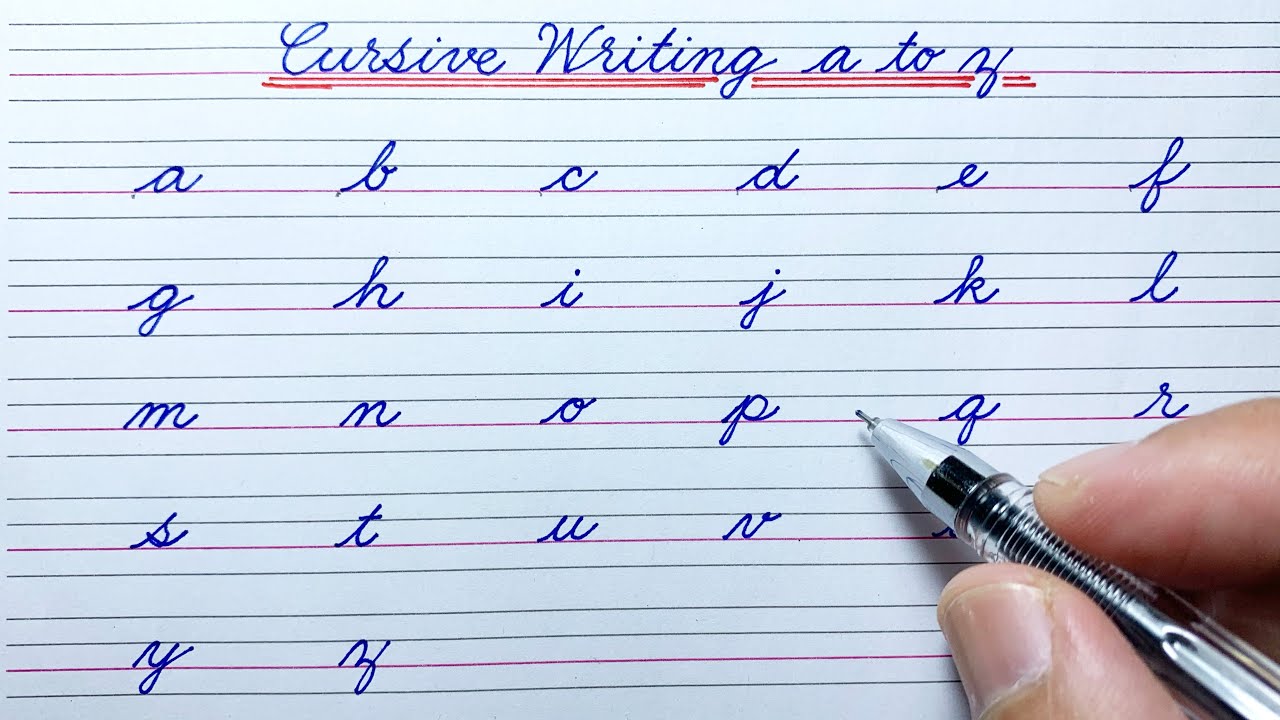 Cursive Writing a to z
a b c d e f
g h i j k l
m n o p q r
s t u v
y z